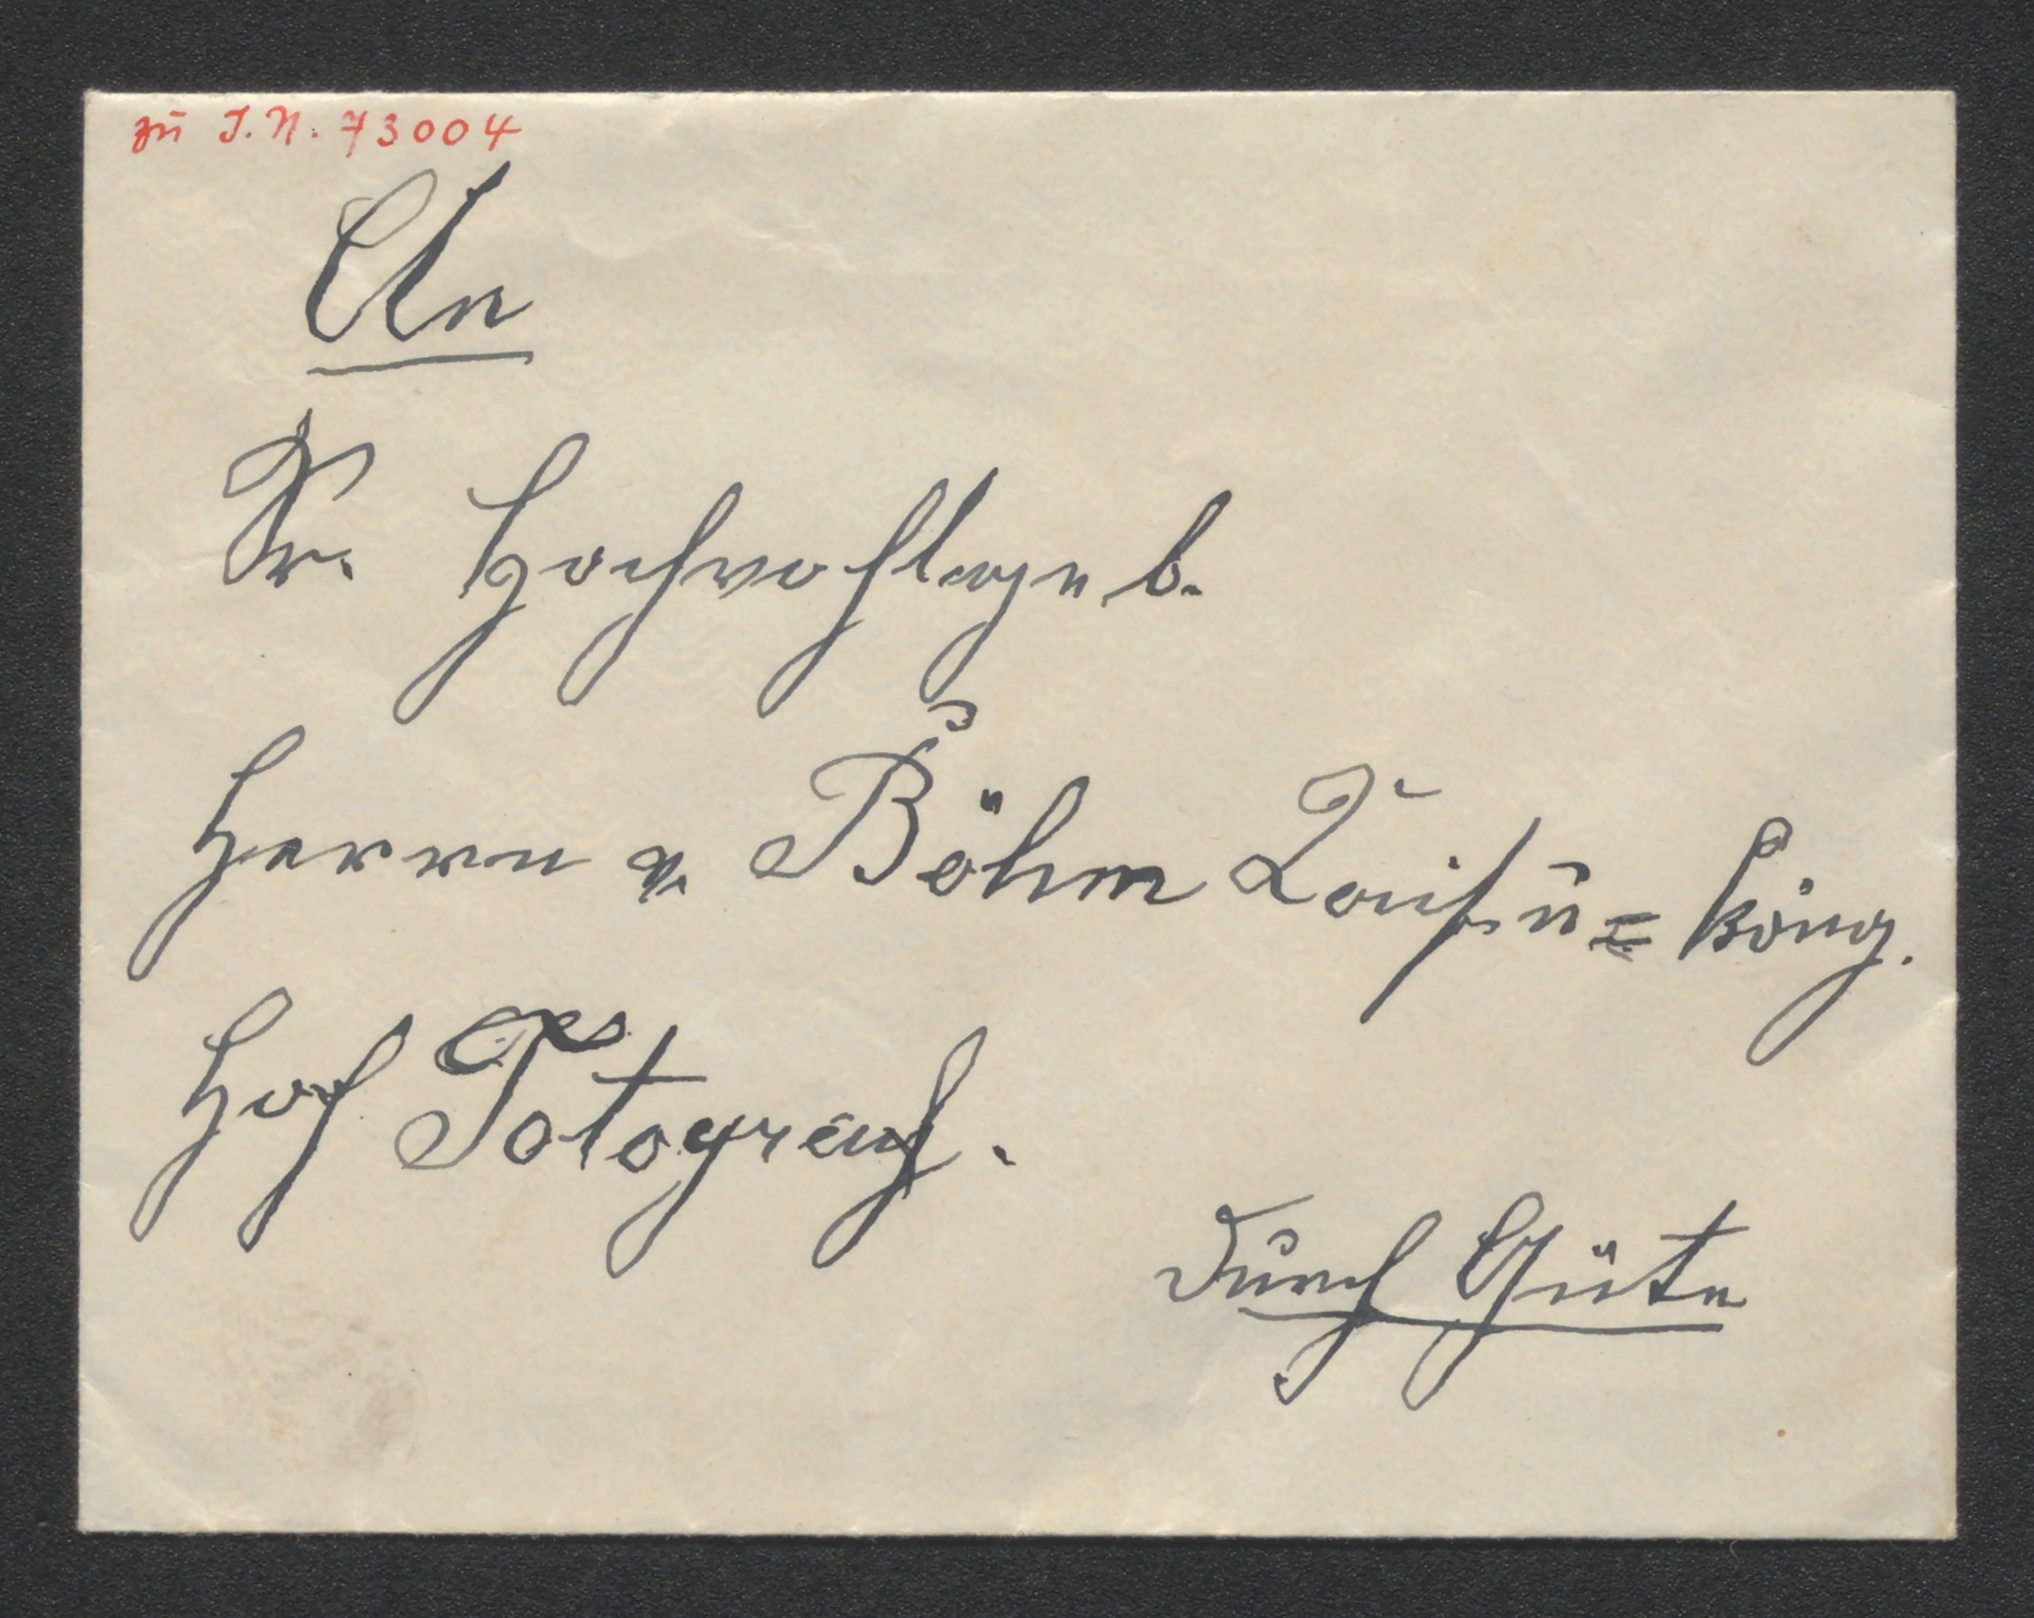 zu I.N. 73004
An
Sr. Hochwohlgeb.
Herrn v. Böhm Kais. u = König.
Hof Fotograf.
Durch Güte